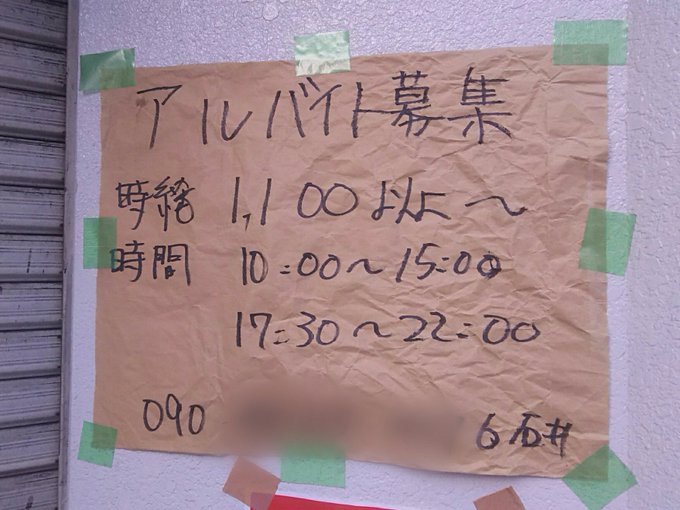 アルバイト募集
時給 1,100 以上～
時間 10:00～15:00
17:30～22:00
090 6 石井